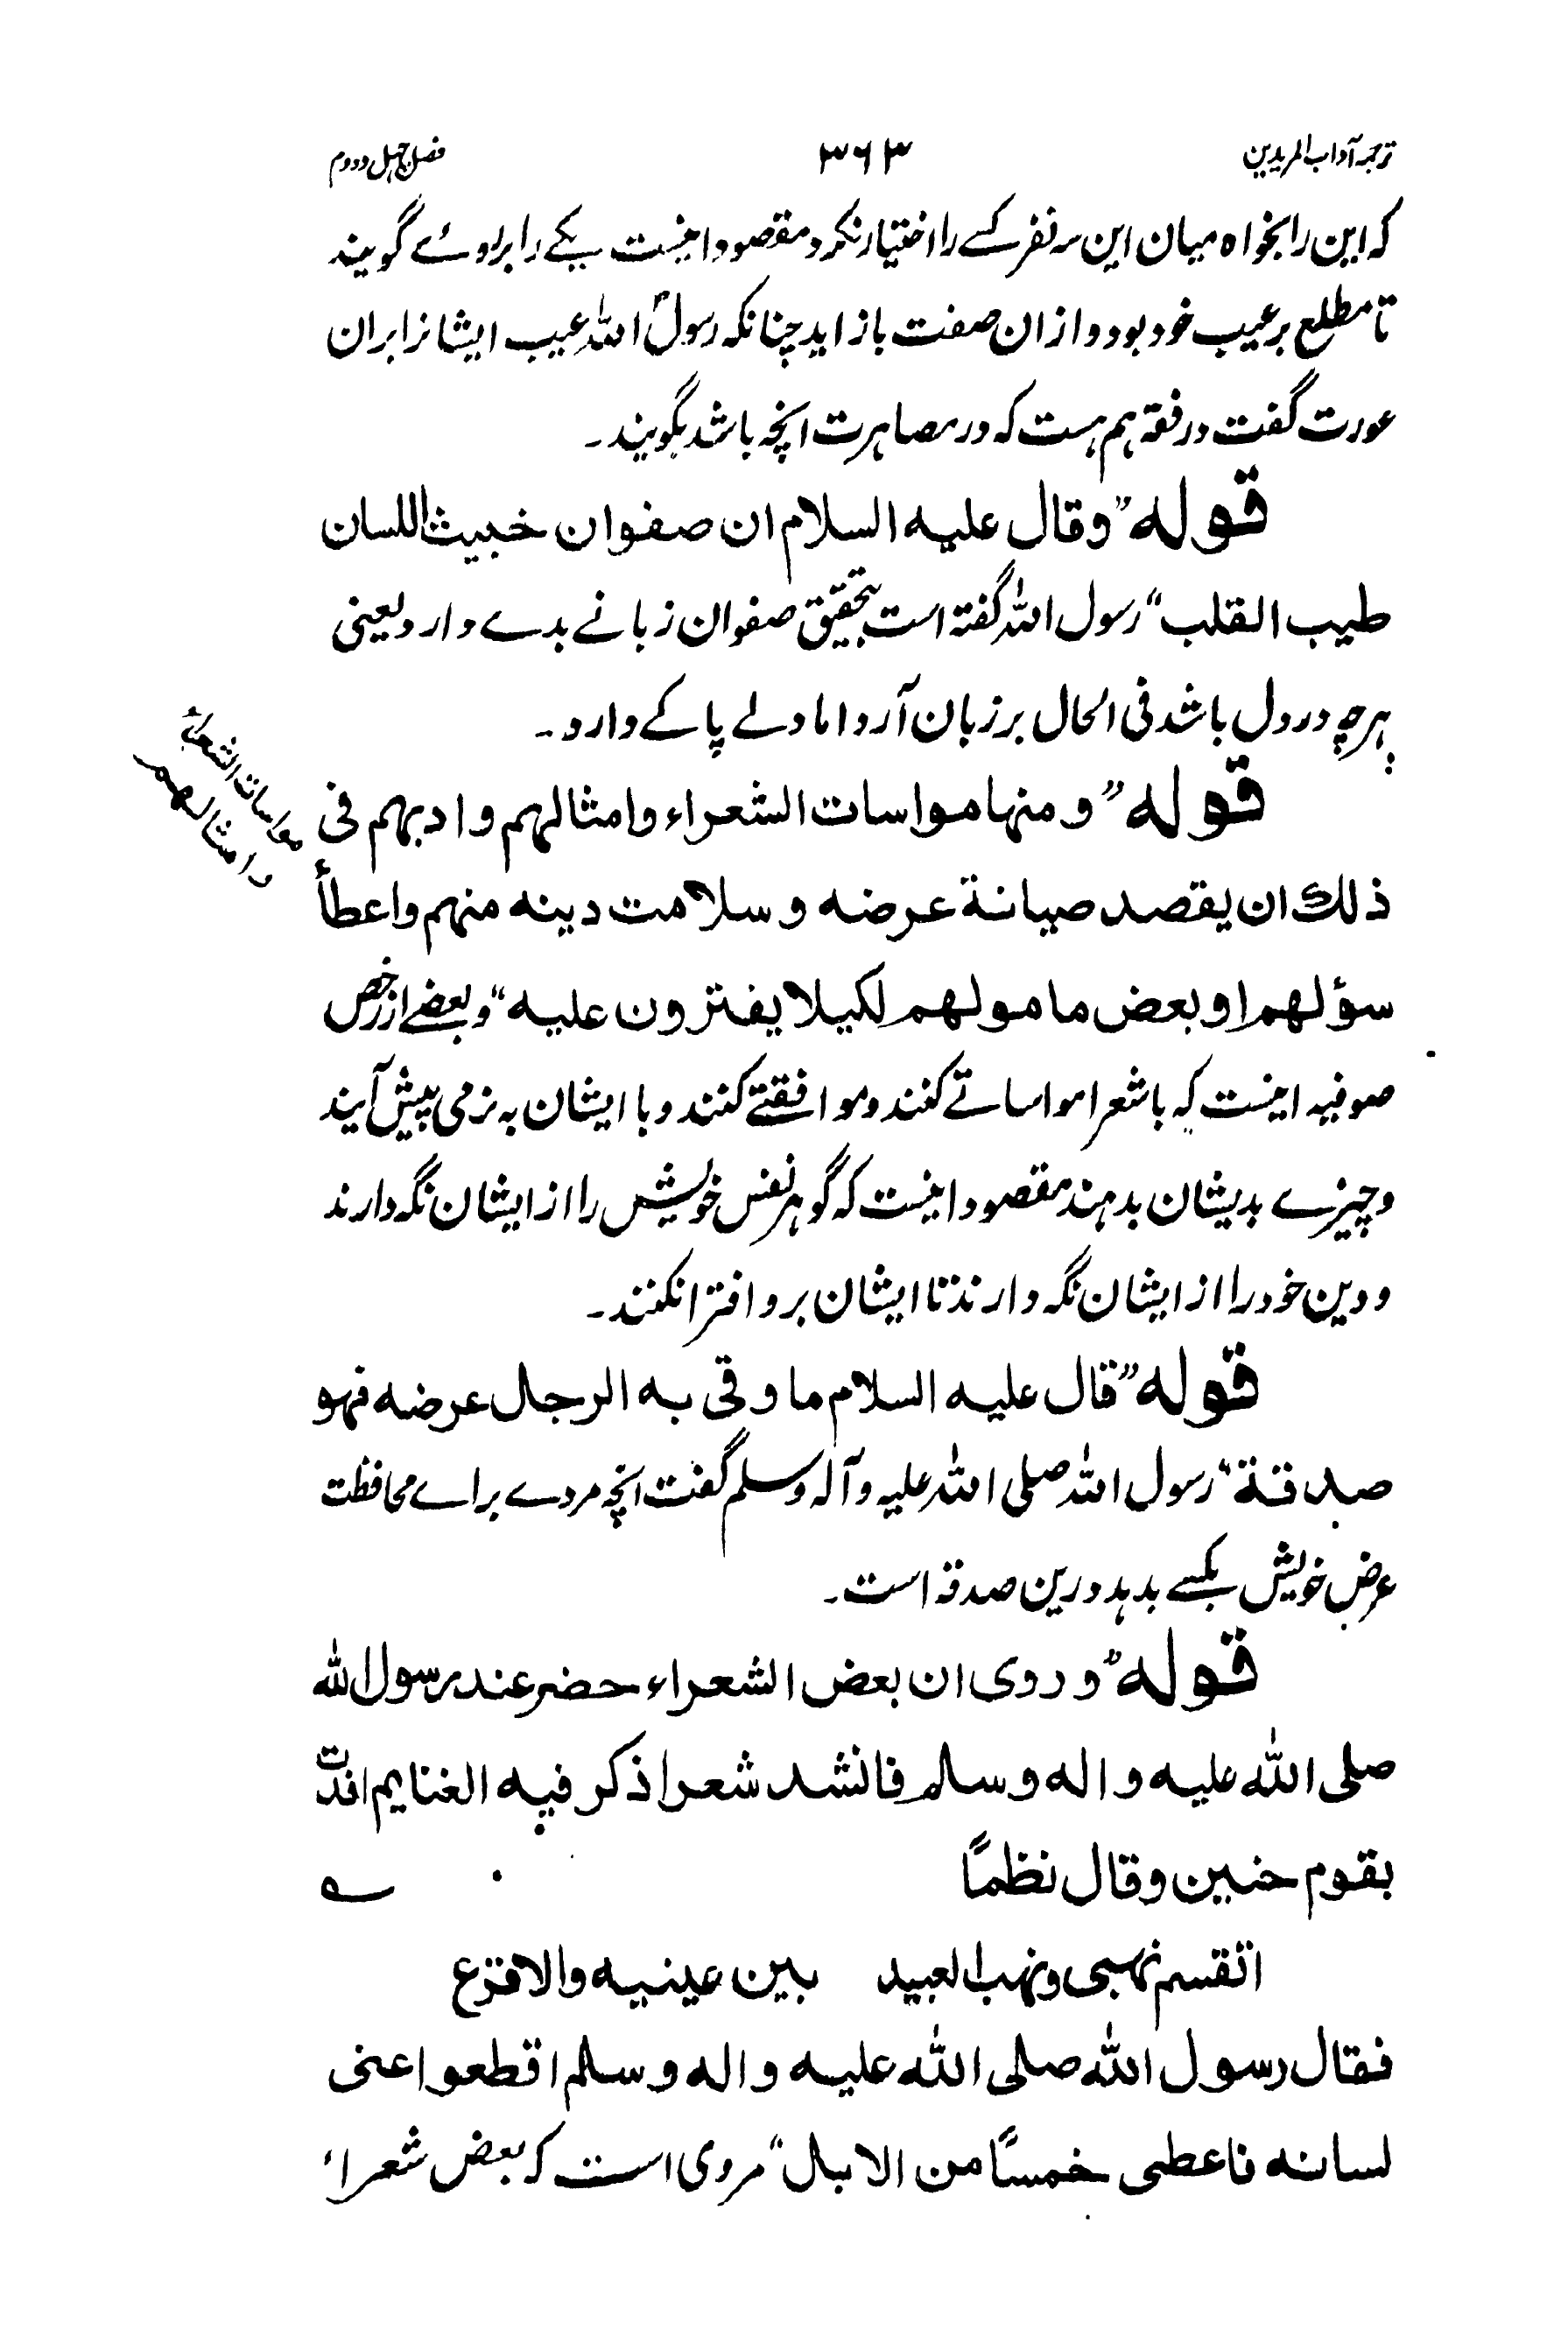 ترجمه آداب المریدین ۳۶۳ فصل چهل و دوم
که این را بخواه میان این سه نفر کسے را اختیار نکرد مقصود اینست یکے را بروئے گویند
تا مطلع بر عیب خود بود و ازان صفت باز اید چنانکه رسولؐ الله عیب ایشانرا بران
عورت گفت در فقه هم هست که در مصاهرت انچه باشد بگویند۔
قوله ”وقال علیه السلام ان صفوان خبیث اللسان
طیب القلب“ رسول الله گفته است بتحقیق صفوان زبانے بدے دارد یعنی
هرچه در دل باشد فی الحال بر زبان آرد اما دلے پاکے دارد۔
مواسات الشعراء
وامثالهم
قوله ”ومنها مواسات الشعراء وامثالهم وادبهم فی
ذلك ان یقصد صیانة عرضه وسلامت دینه منهم واعطأ
سؤلهم او بعض مامولهم لکیلا یفترون علیه“ و بعضے از رخص
صوفیه اینست که با شعرا مواساتے کنند و موافقتے کنند و با ایشان به نرمی پیش آیند
و چیزے بدیشان بدهند مقصود اینست که گوهر نفس خویش را از ایشان نگه دارند
و دین خود را از ایشان نگه دارند تا ایشان برو افترا نکنند۔
قوله ”قال علیه السلام ما وقی به الرجال عرضه فهو
صدقة“ رسول الله صلی الله علیه وآله وسلم گفت انچه مردے براے محافظت
عرض خویش بکسے بدهد درین صدقه است۔
قوله ”وروی ان بعض الشعراء حضر عند رسول الله
صلی الله علیه واله وسلم فانشد شعرا ذکر فیه الغنایم
بقوم حنین وقال نظماً
اتقسم نهبی ونهب العبید بین عینیه والاقرع
فقال رسول الله صلی الله علیه واله وسلم اقطعوا عنی
لسانه فاعطی خمساً من الابال“ مروی است که بعض شعراء